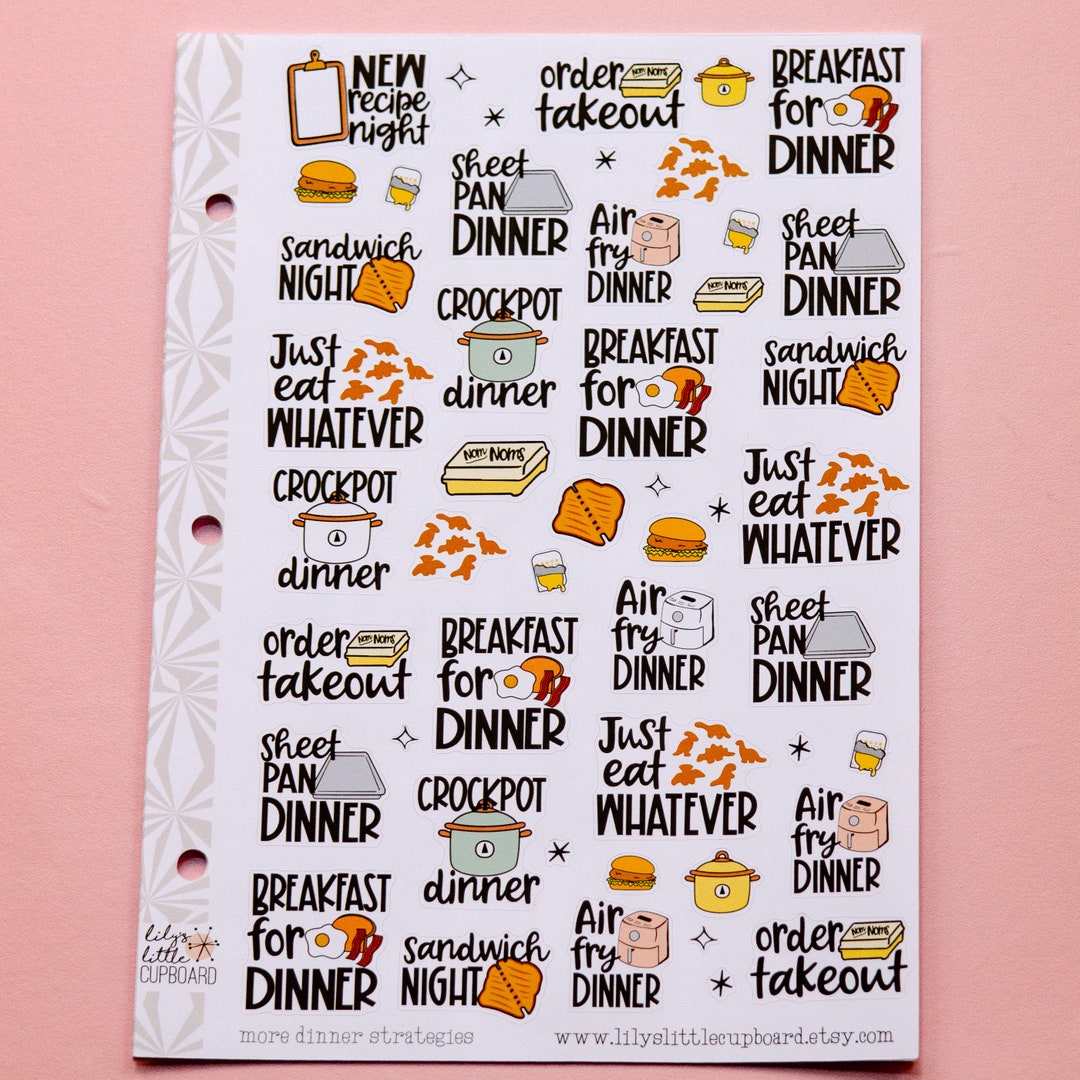 NEW
recipe
night
order
Nom Noms
takeout
BREAKFAST
for
DINNER
sheet
PAN
DINNER
Air
fry
DINNER
sheet
PAN
DINNER
sandwich
NIGHT
CROCKPOT
dinner
Nom Noms
Just
eat
WHATEVER
BREAKFAST
for
DINNER
sandwich
NIGHT
Nom Noms
CROCKPOT
dinner
Just
eat
WHATEVER
order
Nom Noms
takeout
BREAKFAST
for
DINNER
Air
fry
DINNER
sheet
PAN
DINNER
sheet
PAN
DINNER
CROCKPOT
dinner
Just
eat
WHATEVER
Air
fry
DINNER
BREAKFAST
for
DINNER
sandwich
NIGHT
Air
fry
DINNER
order
Nom Noms
takeout
lily's
little
CUPBOARD
more dinner strategies
www.lilyslittlecupboard.etsy.com